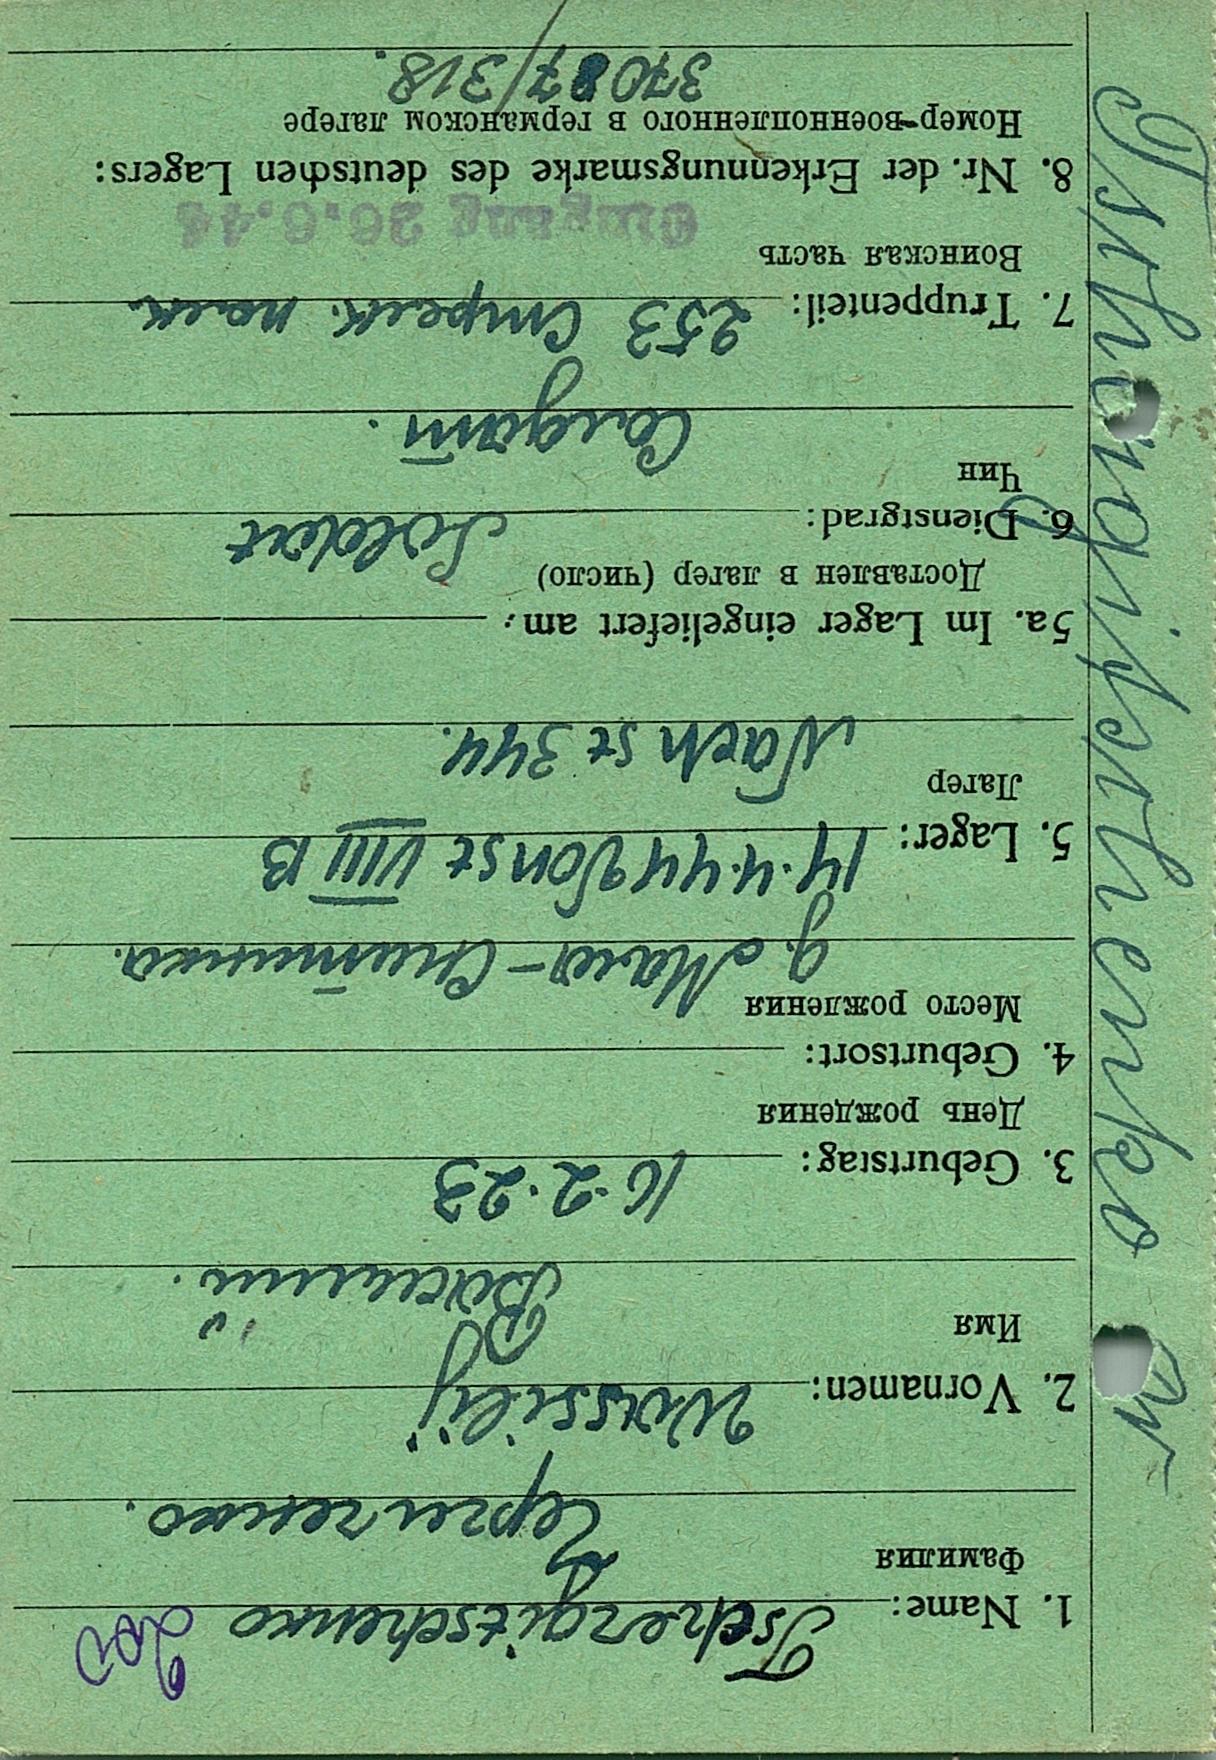 1. Name: Tschergitschenko
Фамилия Чергиченко.
2. Vornamen: Wassilij
Имя Василий.
3. Geburtstag: 16.2.23
День рождения
4. Geburtsort:
Место рождения
5. Lager: 14.4.44 Von St VIII B
Лагер
Nach St 344.
5a. Im Lager eingeliefert am:
Доставлен в лагер (число)
6. Dienstgrad: Soldat
Чин
Солдат.
7. Truppenteil: 253 Стрелк. полк.
Воинская часть
Eingang 26.6.44
8. Nr. der Erkennungsmarke des deutschen Lagers:
Номер-военнопленного в германском лагере
37087/318.